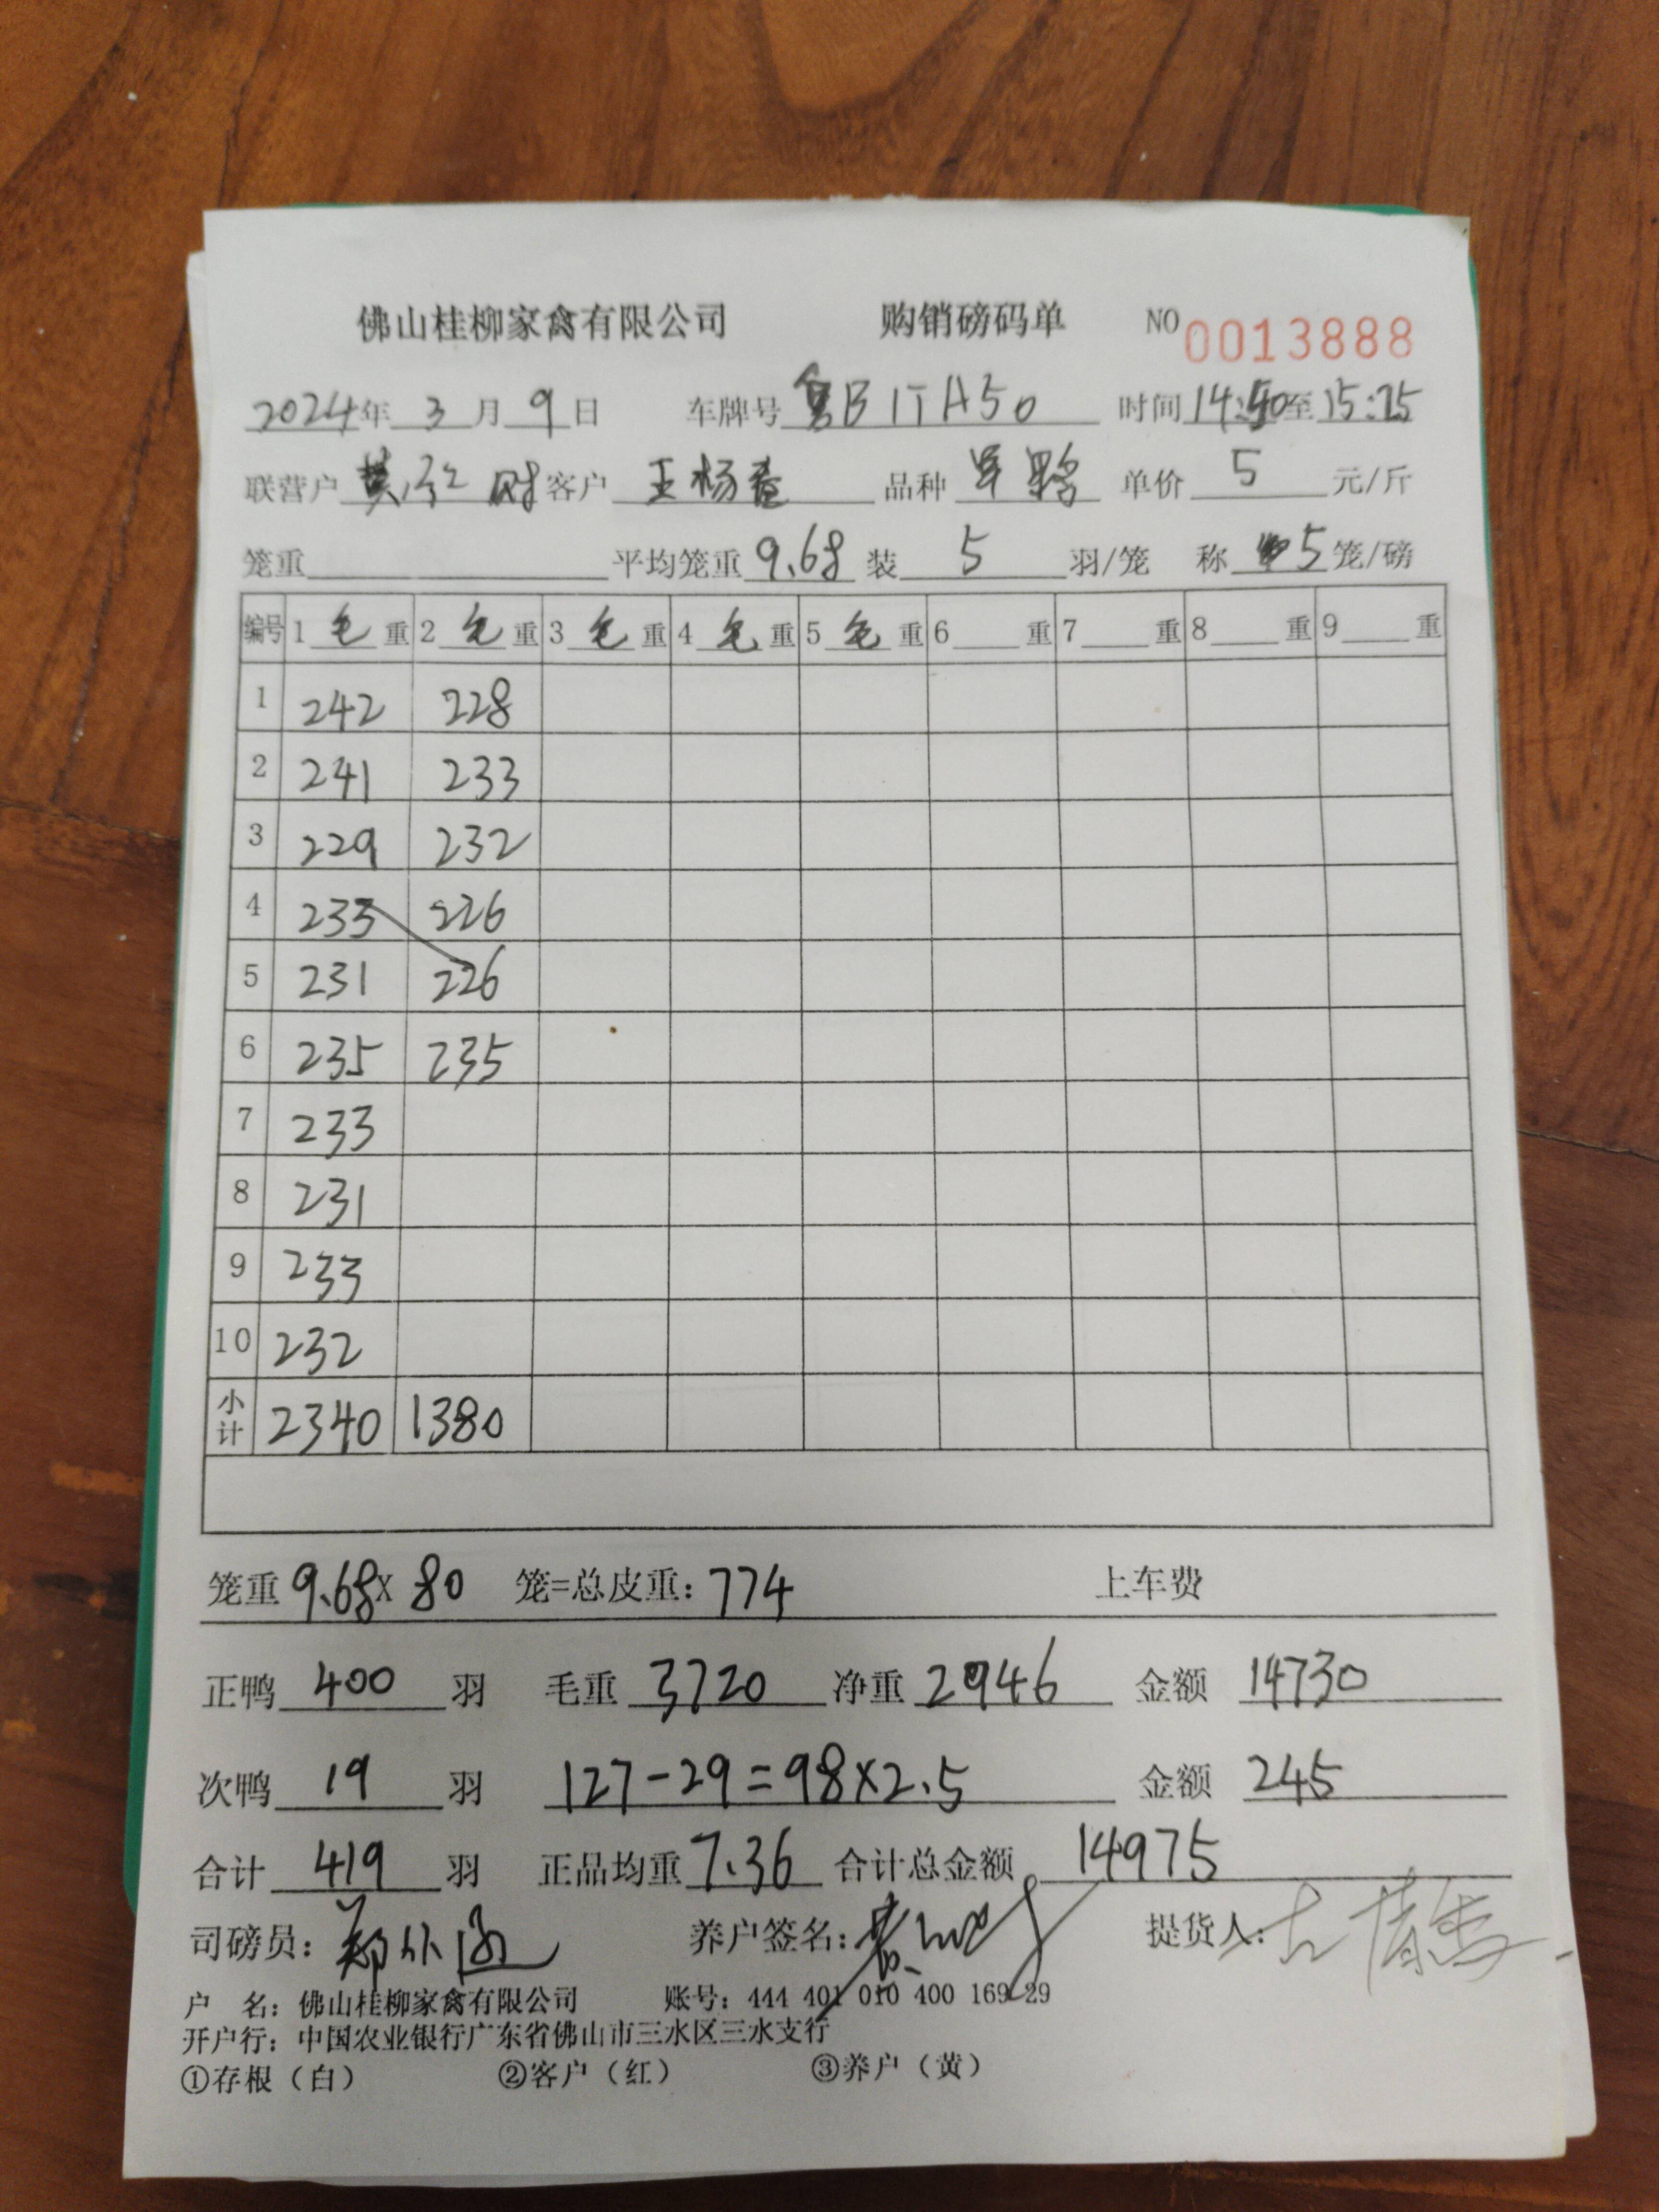 佛山桂柳家禽有限公司 购销磅码单 NO 0013888
2024年 3 月 9 日 车牌号 粤B1TA50 时间 14:50至15:25
联营户 黄 财 客户 王杨 品种 单价 5 元/斤
笼重 平均笼重 9.68 装 5 羽/笼 称 5 笼/磅
编号 1 毛 重 2 毛 重 3 毛 重 4 毛 重 5 毛 重 6 重 7 重 8 重 9 重
1 242 228
2 241 233
3 229 232
4 233 226
5 231 226
6 235 235
7 233
8 231
9 233
10 232
小计 2340 1380
笼重 9.68X 80 笼=总皮重: 774 上车费
正鸭 400 羽 毛重 3720 净重 2946 金额 14730
次鸭 19 羽 127-29=98×2.5 金额 245
合计 419 羽 正品均重 7.36 合计总金额 14975
司磅员: 郑 养户签名: 提货人:
户 名: 佛山桂柳家禽有限公司 账号: 444 401 010 400 169 29
开户行: 中国农业银行广东省佛山市三水区三水支行
①存根（白） ②客户（红） ③养户（黄）